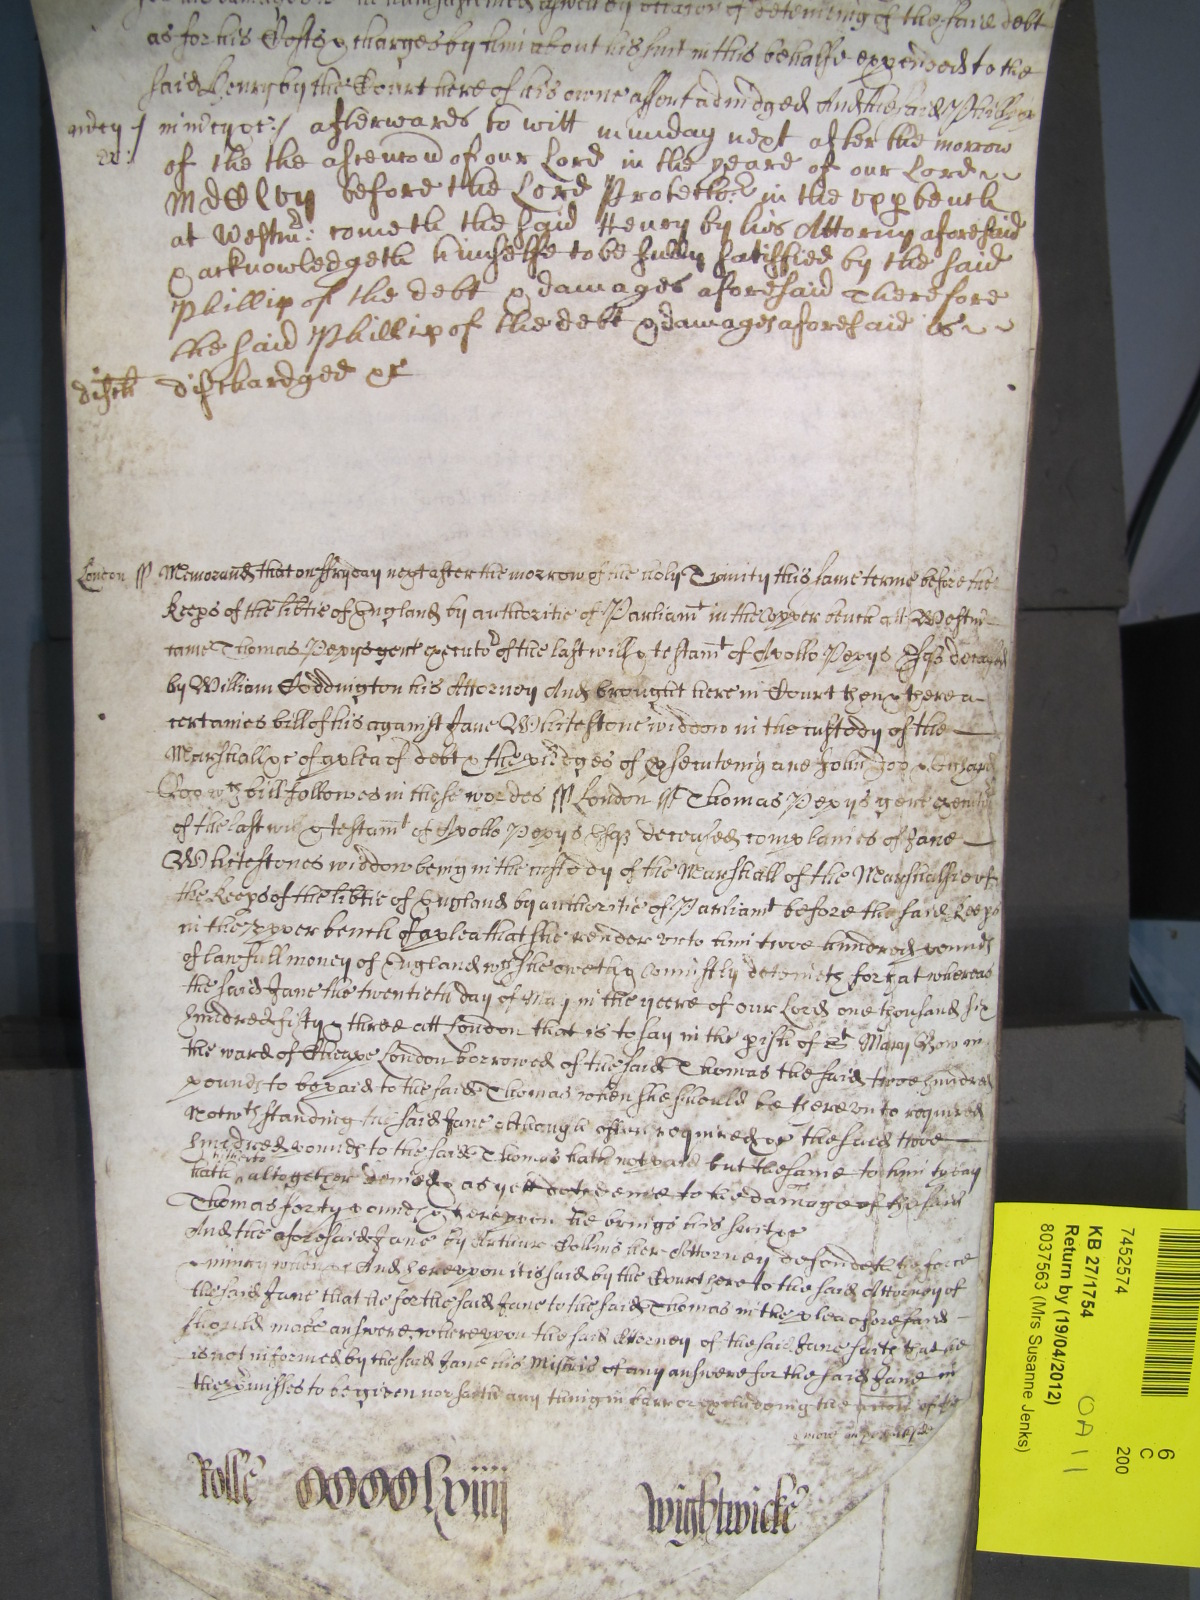 for his damages by occasion of deteining of the said debt
as for his Costs & charges by him about his suit in this behalfe expended to the
said Henry by the Court here of his owne assent adiudged And the said Phillip
in mercy &c / afterwards to witt munday next after the morrow
of the the ascencion of our Lord in the yeare of our Lord
before the Lord Protector in the vpp bench
at Westmr: cometh the said Henry by his Attorny aforesaid
& acknowledgeth himselfe to be fully satisfied by the said
Phillip of the debt & damages aforesaid Therefore
the said Phillip of the debt & damages aforesaid is
disch dischardged &c
London ss Memorand that on ffryday next after the morrow of the holy Trinity this same terme before the
Keeps of the libtie of England by authoritie of Parliamt in the vpper bench att Westmr
came Thomas Pepys gent executor of the last will & testamt of Apollo Pepys Esqr deceased
by William Coddington his Attorney And brought here in Court then & there a
certaine bill of his against Jane Whitestone widdow in the custody of the
Marshall &c of a plea of debt & the pledges of p'secuteing are John Doo & Richard
Roo wch bill followes in these wordes ss London ss Thomas Pepys gent executor
of the last will & testamt of Apollo Pepys Esqr deceased complaines of Jane
Whitestones widdow being in the custody of the Marshall of the Marshallsie of
the Keeps of the libtie of England by authoritie of Parliamt before the said Keeps
in the vpper bench of a plea that she render vnto him twoe hundred pounds
of lawfull money of England wch she oweth & vniustly deteineth for that whereas
the said Jane the twentieth day of May in the yeere of our Lord one thousand six
hundred fifty & three att London that is to say in the pish of St Mary Bow in
the ward of Cheape London borrowed of the said Thomas the said twoe hundred
pounds to be paid to the said Thomas when she should be therevnto required
Notwthstanding the said Jane although often required &c the said twoe
hundred pounds to the said Thomas hath not paid but the same to him to pay
hath hitherto altogether denied & as yett doth denie to the damage of the said
Thomas forty pounds & therevpon he brings his suite &c
And the aforesaid Jane by Arthur Collins her Attorney defendeth the force
& iniury when &c And herevpon it is said by the Court here to the said Attorney of
the said Jane that he for the said Jane to the said Thomas in the plea aforesaid
should make answere wherevpon the said Attorney of the said Jane saith that he
is not informed by the said Jane his Mistris of any answere for the said Jane in
the p'misses to be given nor saith any thing in barr or p'cludeing the accon of the
Rolle CCCClxiiii Wightwicke
7452574
KB 27/1754
Return by (19/04/2012)
8037563 (Mrs Susanne Jenks)
OA 11
6
C
200